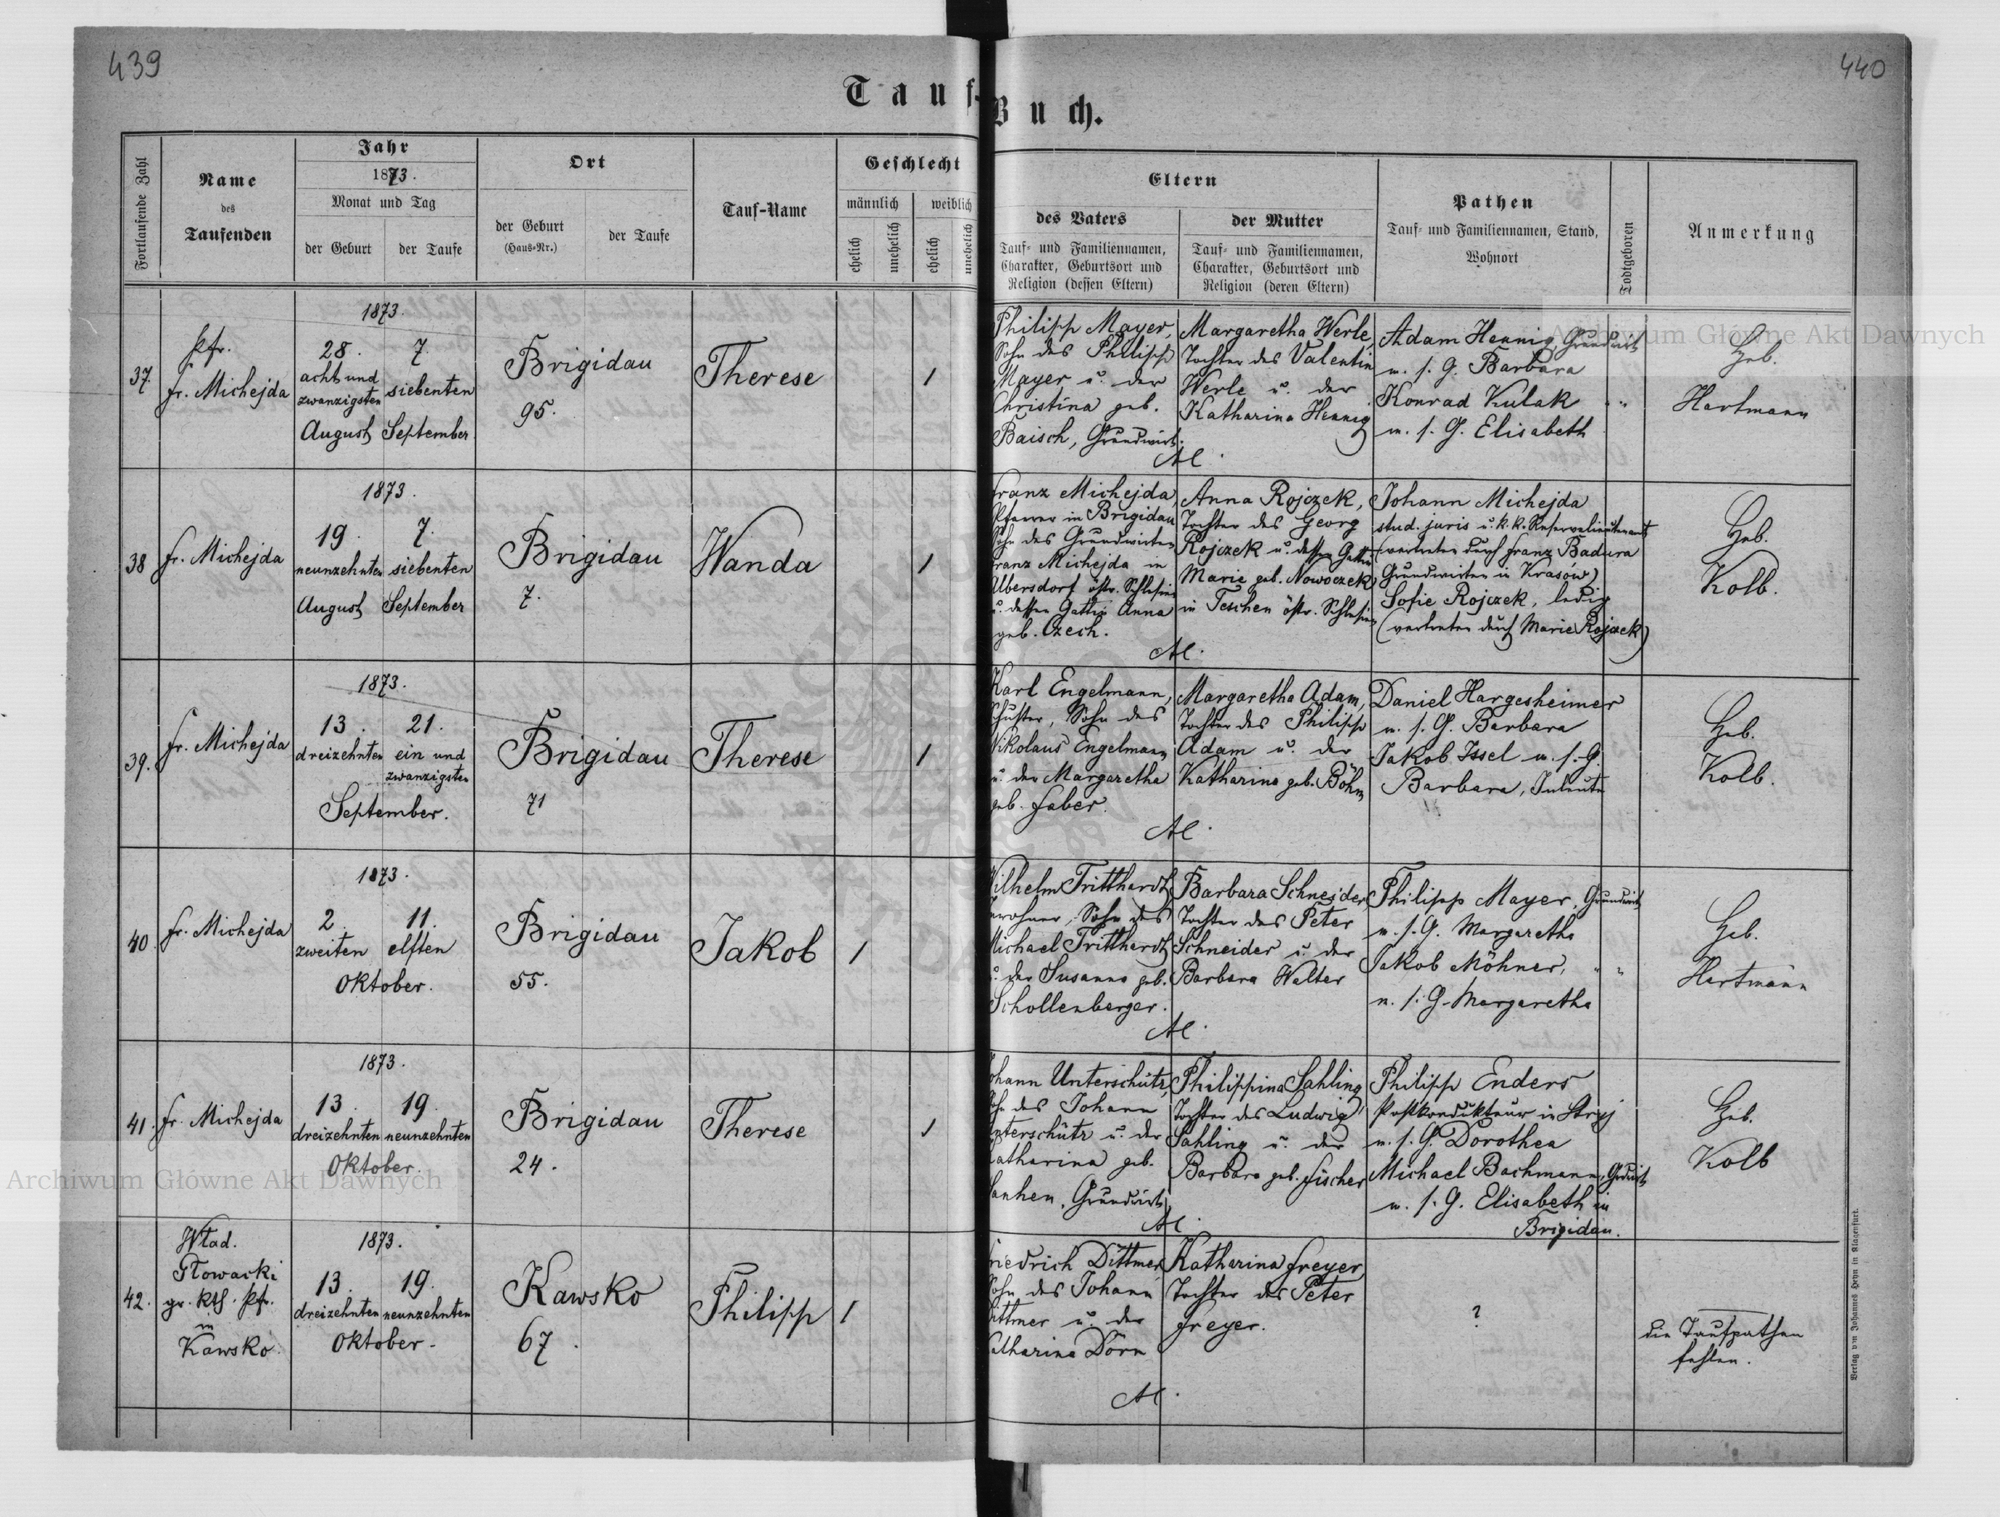 439
440
Tauf-Buch.
Fortlaufende Zahl
Name
des
Taufenden
Jahr
1873.
Monat und Tag
der Geburt
der Taufe
Ort
der Geburt
(Haus-Nr.)
der Taufe
Tauf-Name
Geschlecht
männlich
weiblich
ehelich
unehelich
ehelich
unehelich
Eltern
des Vaters
Tauf- und Familiennamen,
Charakter, Geburtsort und
Religion (dessen Eltern)
der Mutter
Tauf- und Familiennamen,
Charakter, Geburtsort und
Religion (deren Eltern)
Pathen
Tauf- und Familiennamen, Stand,
Wohnort
Todtgeboren
Anmerkung
37.
Pfr.
Fr. Michejda
1873.
28.
acht und
zwanzigsten
August
7.
siebenten
September
Brigidau
95.
Therese
1
Philipp Mayer,
Sohn des Philipp
Mayer u. der
Christina geb.
Baisch, Grundwirt.
Margaretha Werle,
Tochter des Valentin
Werle u. der
Katharina Hennig
Adam Hennig, Grundwirt
u. s. G. Barbara
Konrad Kulak
u. s. G. Elisabeth
Heb.
Hartmann
38
Fr. Michejda
1873.
19.
neunzehnten
August
7.
siebenten
September
Brigidau
7.
Wanda
1
Franz Michejda,
Pfarrer in Brigidau,
Sohn des Grundwirten
Franz Michejda in
Albersdorf östr. Schlesien
u. dessen Gattin Anna
geb. Czech.
Anna Rojczek,
Tochter des Georg
Rojczek u. dessen Gattin
Marie geb. Nowoczek
in Teschen östr. Schlesien
Johann Michejda
stud. juris u. k. k. Reservelieutenant
(vertreten durch Franz Badura
Grundwirten in Krasów)
Sofie Rojczek, ledig
(vertreten durch Marie Rojczek)
Heb.
Kolb.
39.
Fr. Michejda
1873.
13.
dreizehnten
21.
ein und
zwanzigsten
September.
Brigidau
71
Therese
1
Karl Engelmann,
Schuster, Sohn des
Nikolaus Engelmann
u. der Margaretha
geb. Faber.
Margaretha Adam,
Tochter des Philipp
Adam u. der
Katharina geb. Böhm
Daniel Hargesheimer
u. s. G. Barbara
Jakob Issel u. s. G.
Barbara, Inleute
Heb.
Kolb.
40
Fr. Michejda
1873.
2.
zweiten
11.
elften
Oktober.
Brigidau
55.
Jakob
1
Wilhelm Tritthardt,
Sohn des
Michael Tritthardt
u. der Susanna geb.
Schollenberger.
Barbara Schneider,
Tochter des Peter
Schneider u. der
Barbara Walter
Philipp Mayer, Grundwirt
u. s. G. Margaretha
Jakob Möhner,
u. s. G. Margaretha
Heb.
Hartmann
41.
Fr. Michejda
1873.
13.
dreizehnten
19.
neunzehnten
Oktober.
Brigidau
24.
Therese
1
Johann Unterschütz,
Sohn des Johann
Unterschütz u. der
Katharina geb.
Grundwirt
Philippina Sahling,
Tochter des Ludwig
Sahling u. der
Barbara geb. Fischer
Philipp Enders
Postkondukteur in Stryj
u. s. G. Dorothea
Michael Bachmann, Grdwirt
u. s. G. Elisabeth in
Brigidau.
Heb.
Kolb
42.
Wład.
Głowacki
gr. kth. Pfr.
in
Kawsko.
1873.
13.
dreizehnten
19.
neunzehnten
Oktober.
Kawsko
67.
Philipp
1
Friedrich Dittmer,
Sohn des Johann
Dittmer u. der
Katharina Dörn
Katharina Freyer,
Tochter des Peter
Freyer.
?
die Taufpathen
fehlen.
Verlag von Johannes Heyn in Klagenfurt.
Archiwum Główne Akt Dawnych
Archiwum Główne Akt Dawnych